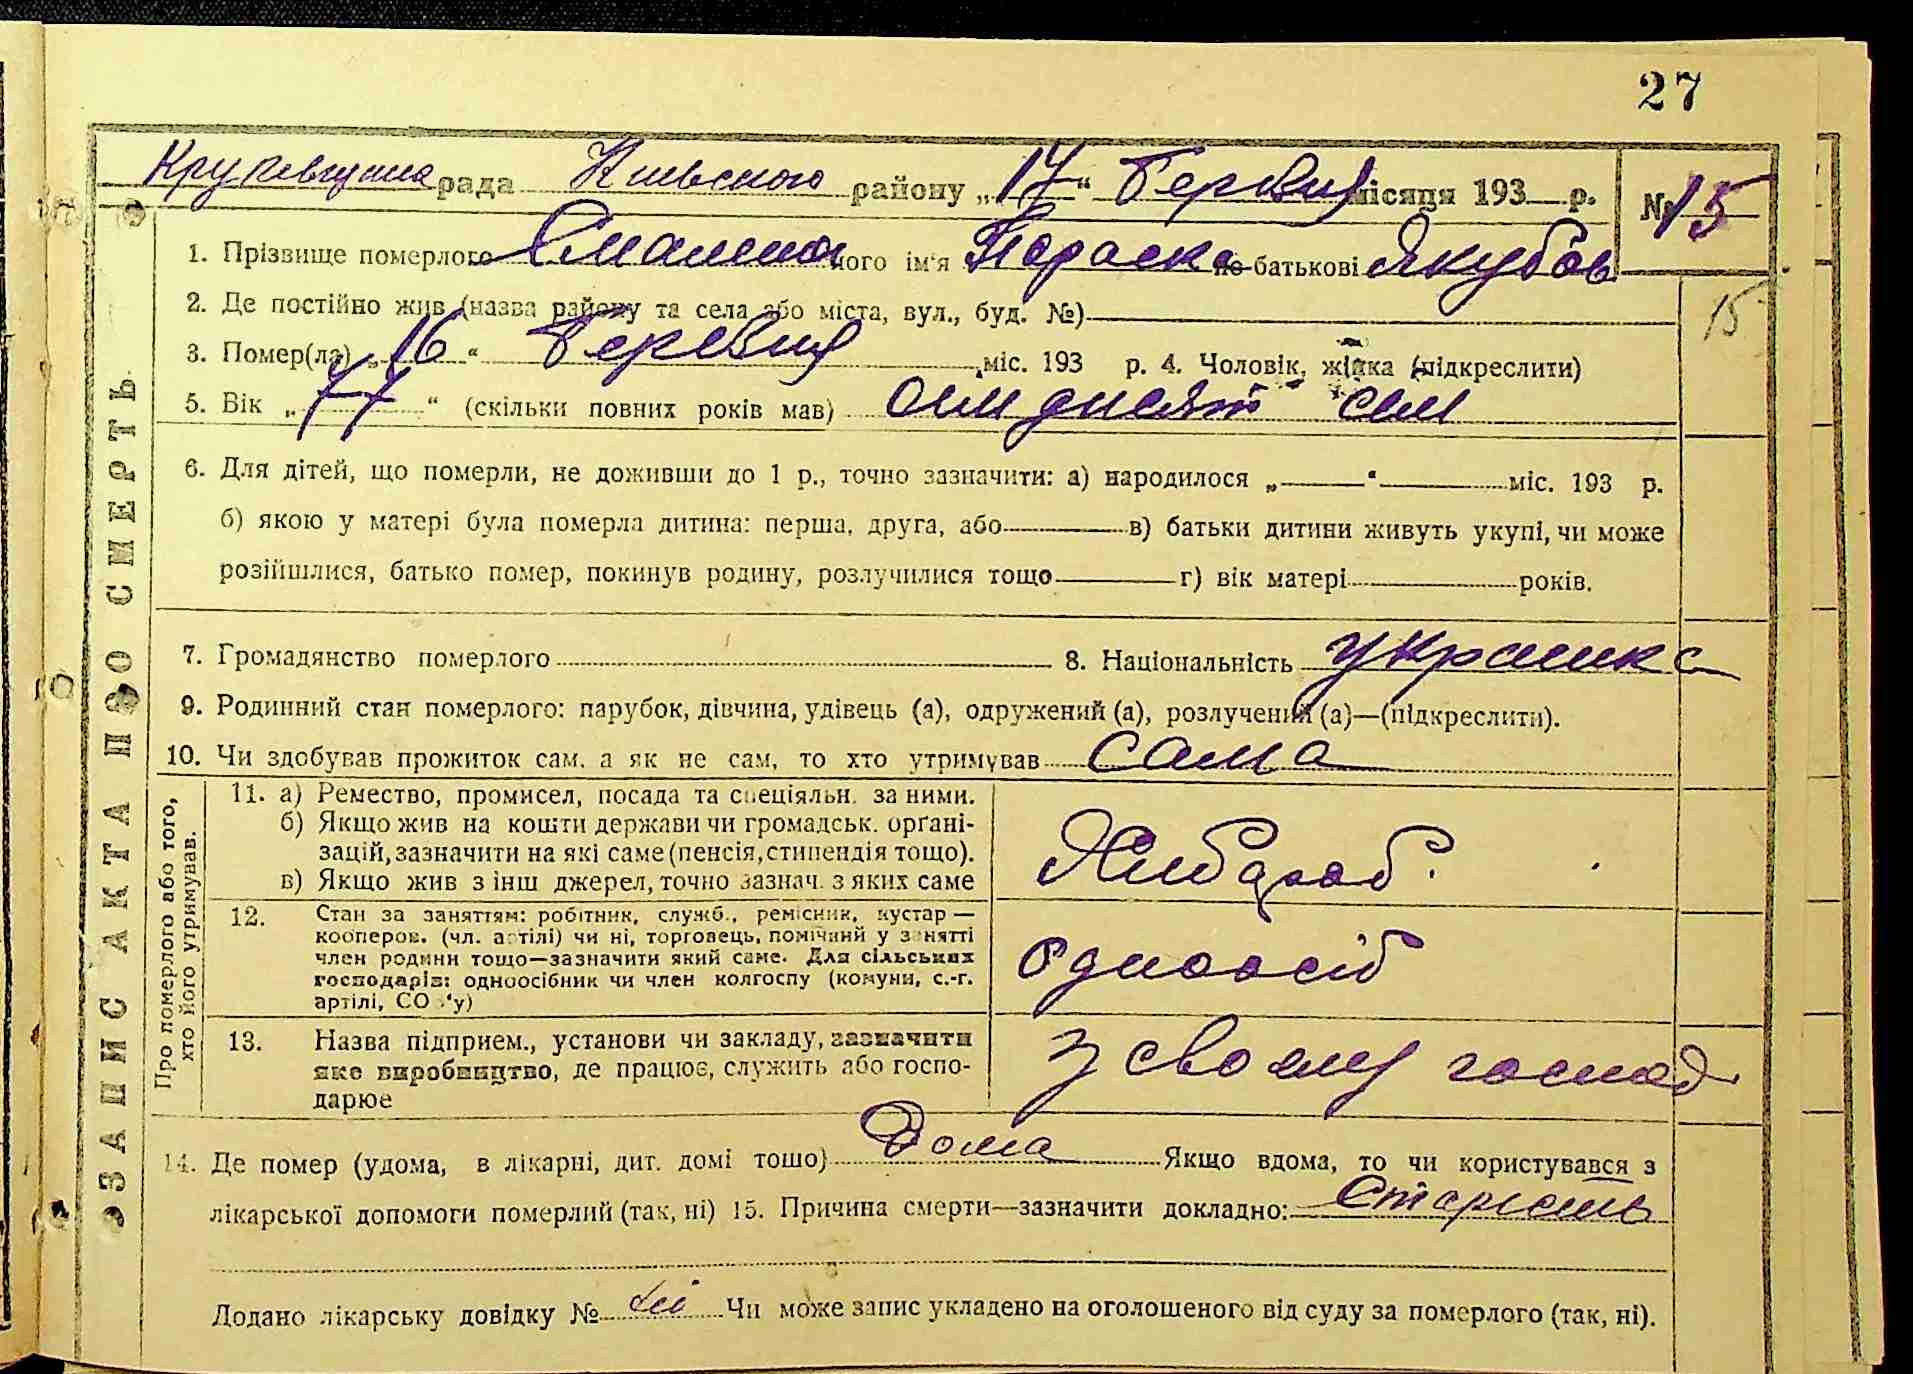 27
рада Київського району „17“ Березня місяця 193 р. № 15
1. Прізвище померлого його ім'я Параска по батькові Якубов
15
2. Де постійно жив (назва району та села або міста, вул., буд. №)
3. Помер(ла) „16“ Березня міс. 193 р. 4. Чоловік, жінка (підкреслити)
5. Вік „77“ (скільки повних років мав) сімдисят сем
6. Для дітей, що померли, не доживши до 1 р., точно зазначити: а) народилося „ “ міс. 193 р.
б) якою у матері була померла дитина: перша, друга, або в) батьки дитини живуть укупі, чи може
розійшлися, батько помер, покинув родину, розлучилися тощо г) вік матері років.
7. Громадянство померлого 8. Національність украинка
9. Родинний стан померлого: парубок, дівчина, удівець (а), одружений (а), розлучений (а)—(підкреслити).
10. Чи здобував прожиток сам, а як не сам, то хто утримував сама
ЗАПИС АКТА ПРО СМЕРТЬ
Про померлого або того,
хто його утримував.
11. а) Ремество, промисел, посада та спеціяльн. за ними.
б) Якщо жив на кошти держави чи громадськ. органі-
зацій, зазначити на які саме (пенсія, стипендія тощо).
в) Якщо жив з інш джерел, точно зазнач. з яких саме
Хлібороб.
12. Стан за заняттям: робітник, служб., ремісник, кустар—
кооперов. (чл. артілі) чи ні, торговець, помічний у занятті
член родини тощо—зазначити який саме. Для сільських
господарів: одноосібник чи член колгоспу (комуни, с.-г.
артілі, СО у)
одноосіб
13. Назва підприєм., установи чи закладу, зазначити
яке виробництво, де працює, служить або госпо-
дарює
У своему господ
14. Де помер (удома, в лікарні, дит. домі тощо) Дома Якщо вдома, то чи користувався з
лікарської допомоги померлий (так, ні) 15. Причина смерти—зазначити докладно: Старість
Додано лікарську довідку № Чи може запис укладено на оголошеного від суду за померлого (так, ні).